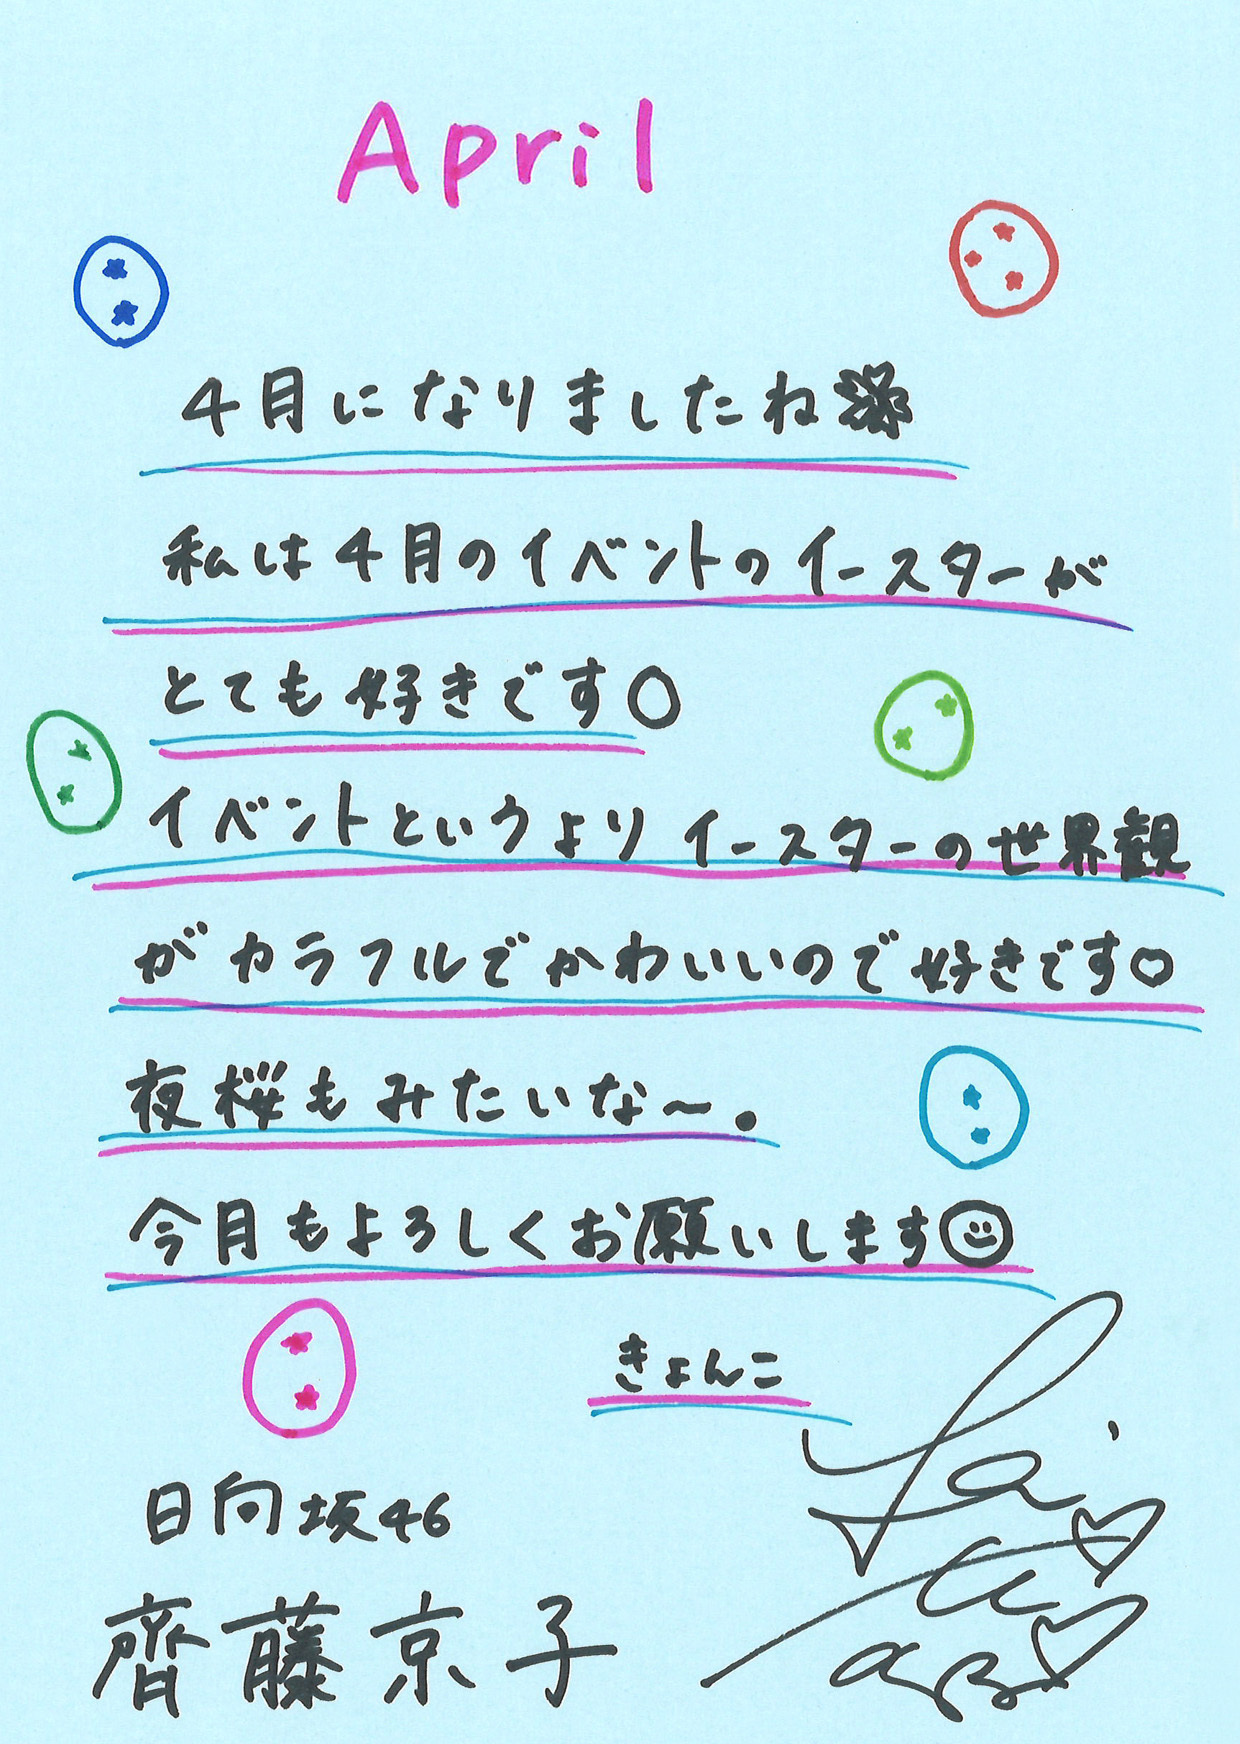 April
4月になりましたね🌸
私は4月のイベントのイースターが
とても好きです○
イベントというよりイースターの世界観
がカラフルでかわいいので好きです♡
夜桜もみたいな〜。
今月もよろしくお願いします☺
きょんこ
日向坂46
齊藤京子